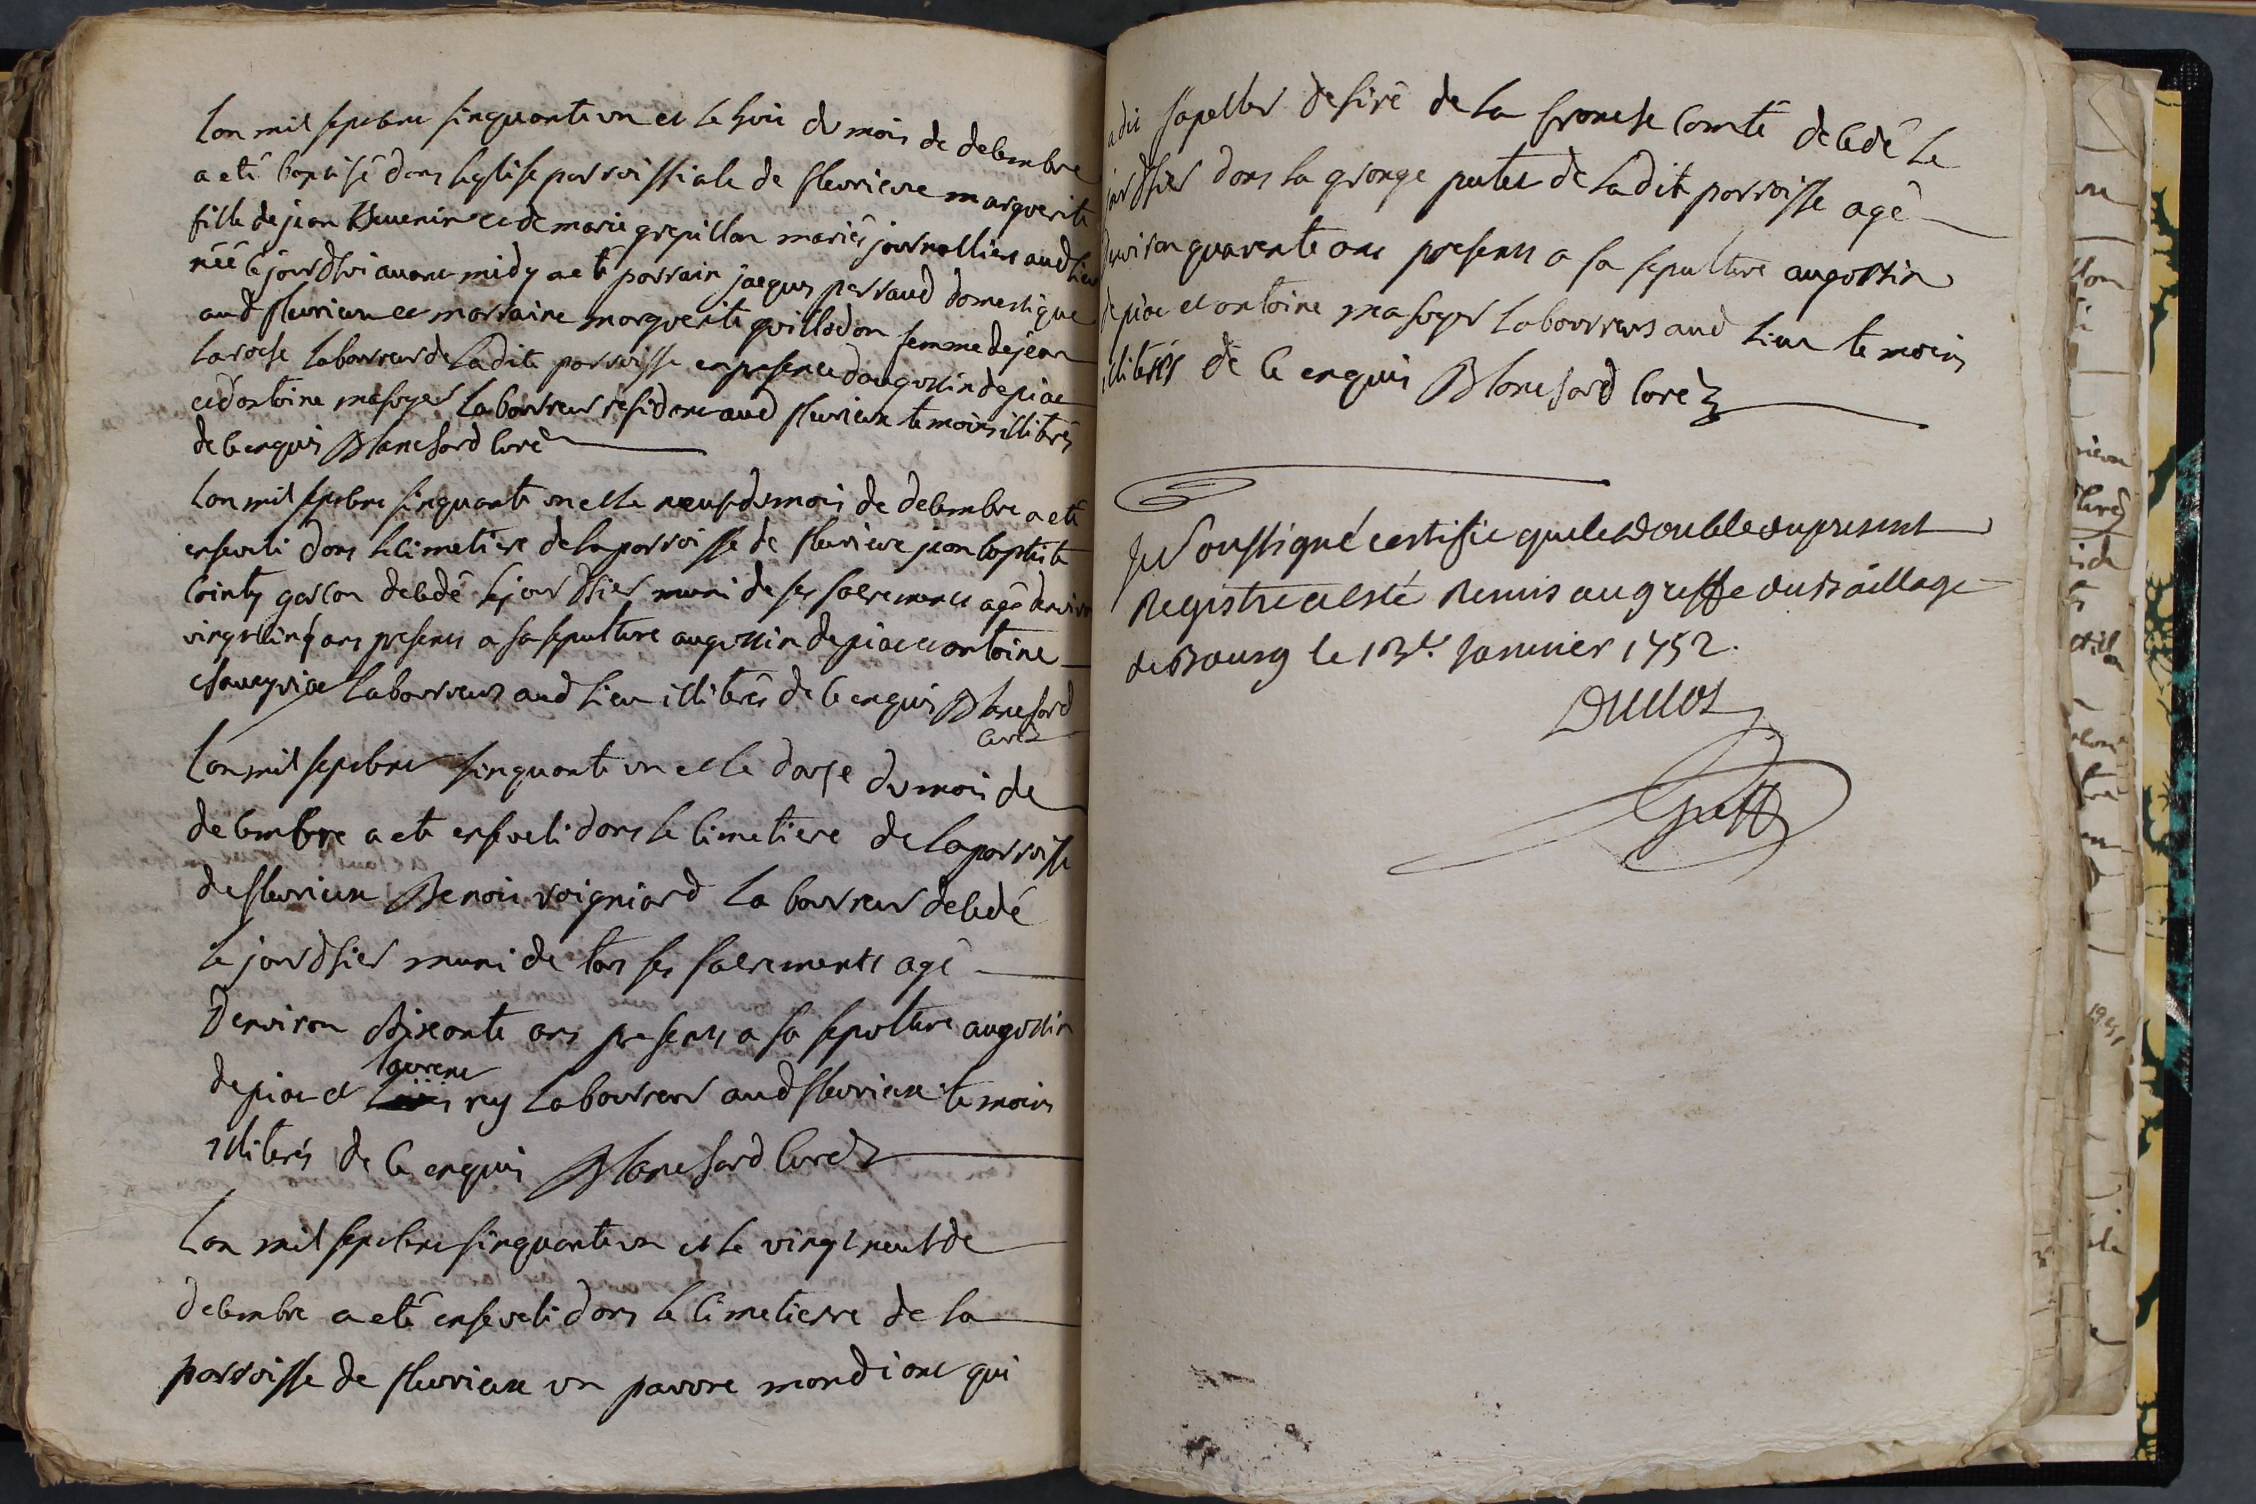 lan mil sept cent sinquante un et le huit du mois de decembre
a eté baptisé dans leglise parroissiale de fleurieux marguerite
fille de jean thevenin et de marie grepillon mariés journalliers aud lieu
néé ce jourdhui avant midy a eté parrain jacques perraud domestique
aud fleurieux et marraine marguerite guillodon femme de jean
laroche laboureur de ladite parroisse en presence daugustin depiae
et dantoine masoyer laboureur residens aud fleurieux temoins illiterés
de ce enquis Blanchard curé
lan mil sept cent sinquante un et le neuf du mois de decembre a eté
enseveli dans le cimetiere de la parroisse de fleurieux jean baptiste
cointy garcon decedé le jour dhier muni de ses sacrements agé denviron
vingt cinq ans presents a sa sepulture augustin depiae et antoine
laboureurs aud lieu illiterés de ce enquis Blanchard
curé
lan mil sept cent sinquante un et le douse du mois de
decembre a eté enseveli dans le cimetiere de la parroisse
de fleurieux Benoit voigniard laboureur decedé
le jour dhier muni de tous ses sacrements agé
denviron soixante ans presents a sa sepulture augustin
depiae et laurent rey laboureurs aud fleurieux temoins
illiterés de ce enquis Blanchard curé
lan mil sept cent sinquante un et le vingt neuf de
decembre a eté enseveli dans le cimetierre de la
parroisse de fleurieux un pauvre mandiant qui
a dit sapeller desiré de la franche comté decedé le
jour dhier dans la grange putet de ladite parroisse agé
denviron quarente ans presents a sa sepulture augustin
depiae et antoine masoyer laboureurs aud lieu temoins
illiterés de ce enquis Blanchard curé
Je Soussigné certifie que le double du present
Registre a esté Remis au greffe du Baillage
de Bourg le 13e. Janvier 1752.
Duclos
Greff